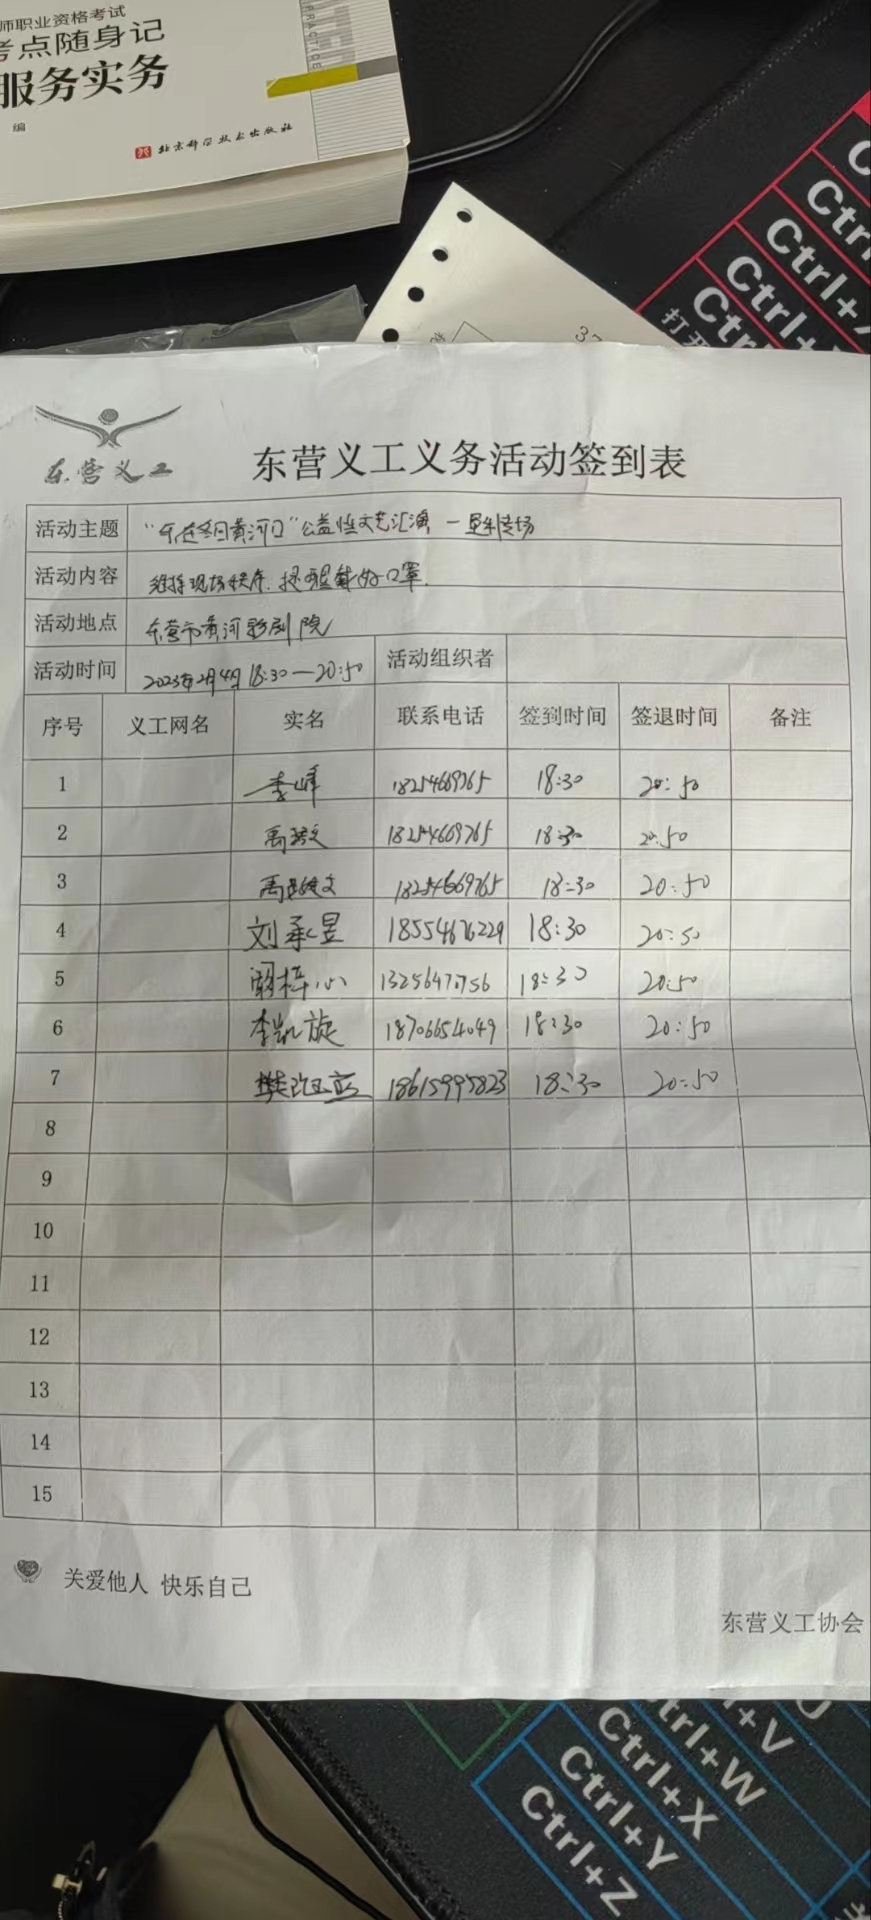 师职业资格考试
考点随身记
服务实务
编
北京科学技术出版社
PRACTICE
37
Ctrl+
Ctrl+
Ctrl+
打开
东营义工
东营义工义务活动签到表
活动主题 "乐在冬日黄河口"公益性文艺汇演 — 专场
活动内容 维持现场秩序.提醒戴好口罩.
活动地点 东营市黄河影剧院
活动时间 2023年2月4日 18:30—20:50 活动组织者
序号 义工网名 实名 联系电话 签到时间 签退时间 备注
1 李峰 18254669765 18:30 20:50
2 禹 18254669765 18:30 20:50
3 禹 18254669765 18:30 20:50
4 刘承昱 18554676229 18:30 20:50
5 梓心 18:30 20:50
6 李凯旋 18706654049 18:30 20:50
7 樊 18615995823 18:30 20:50
8
9
10
11
12
13
14
15
关爱他人 快乐自己
东营义工协会
Ctrl+V
Ctrl+W
Ctrl+X
Ctrl+Y
Ctrl+Z